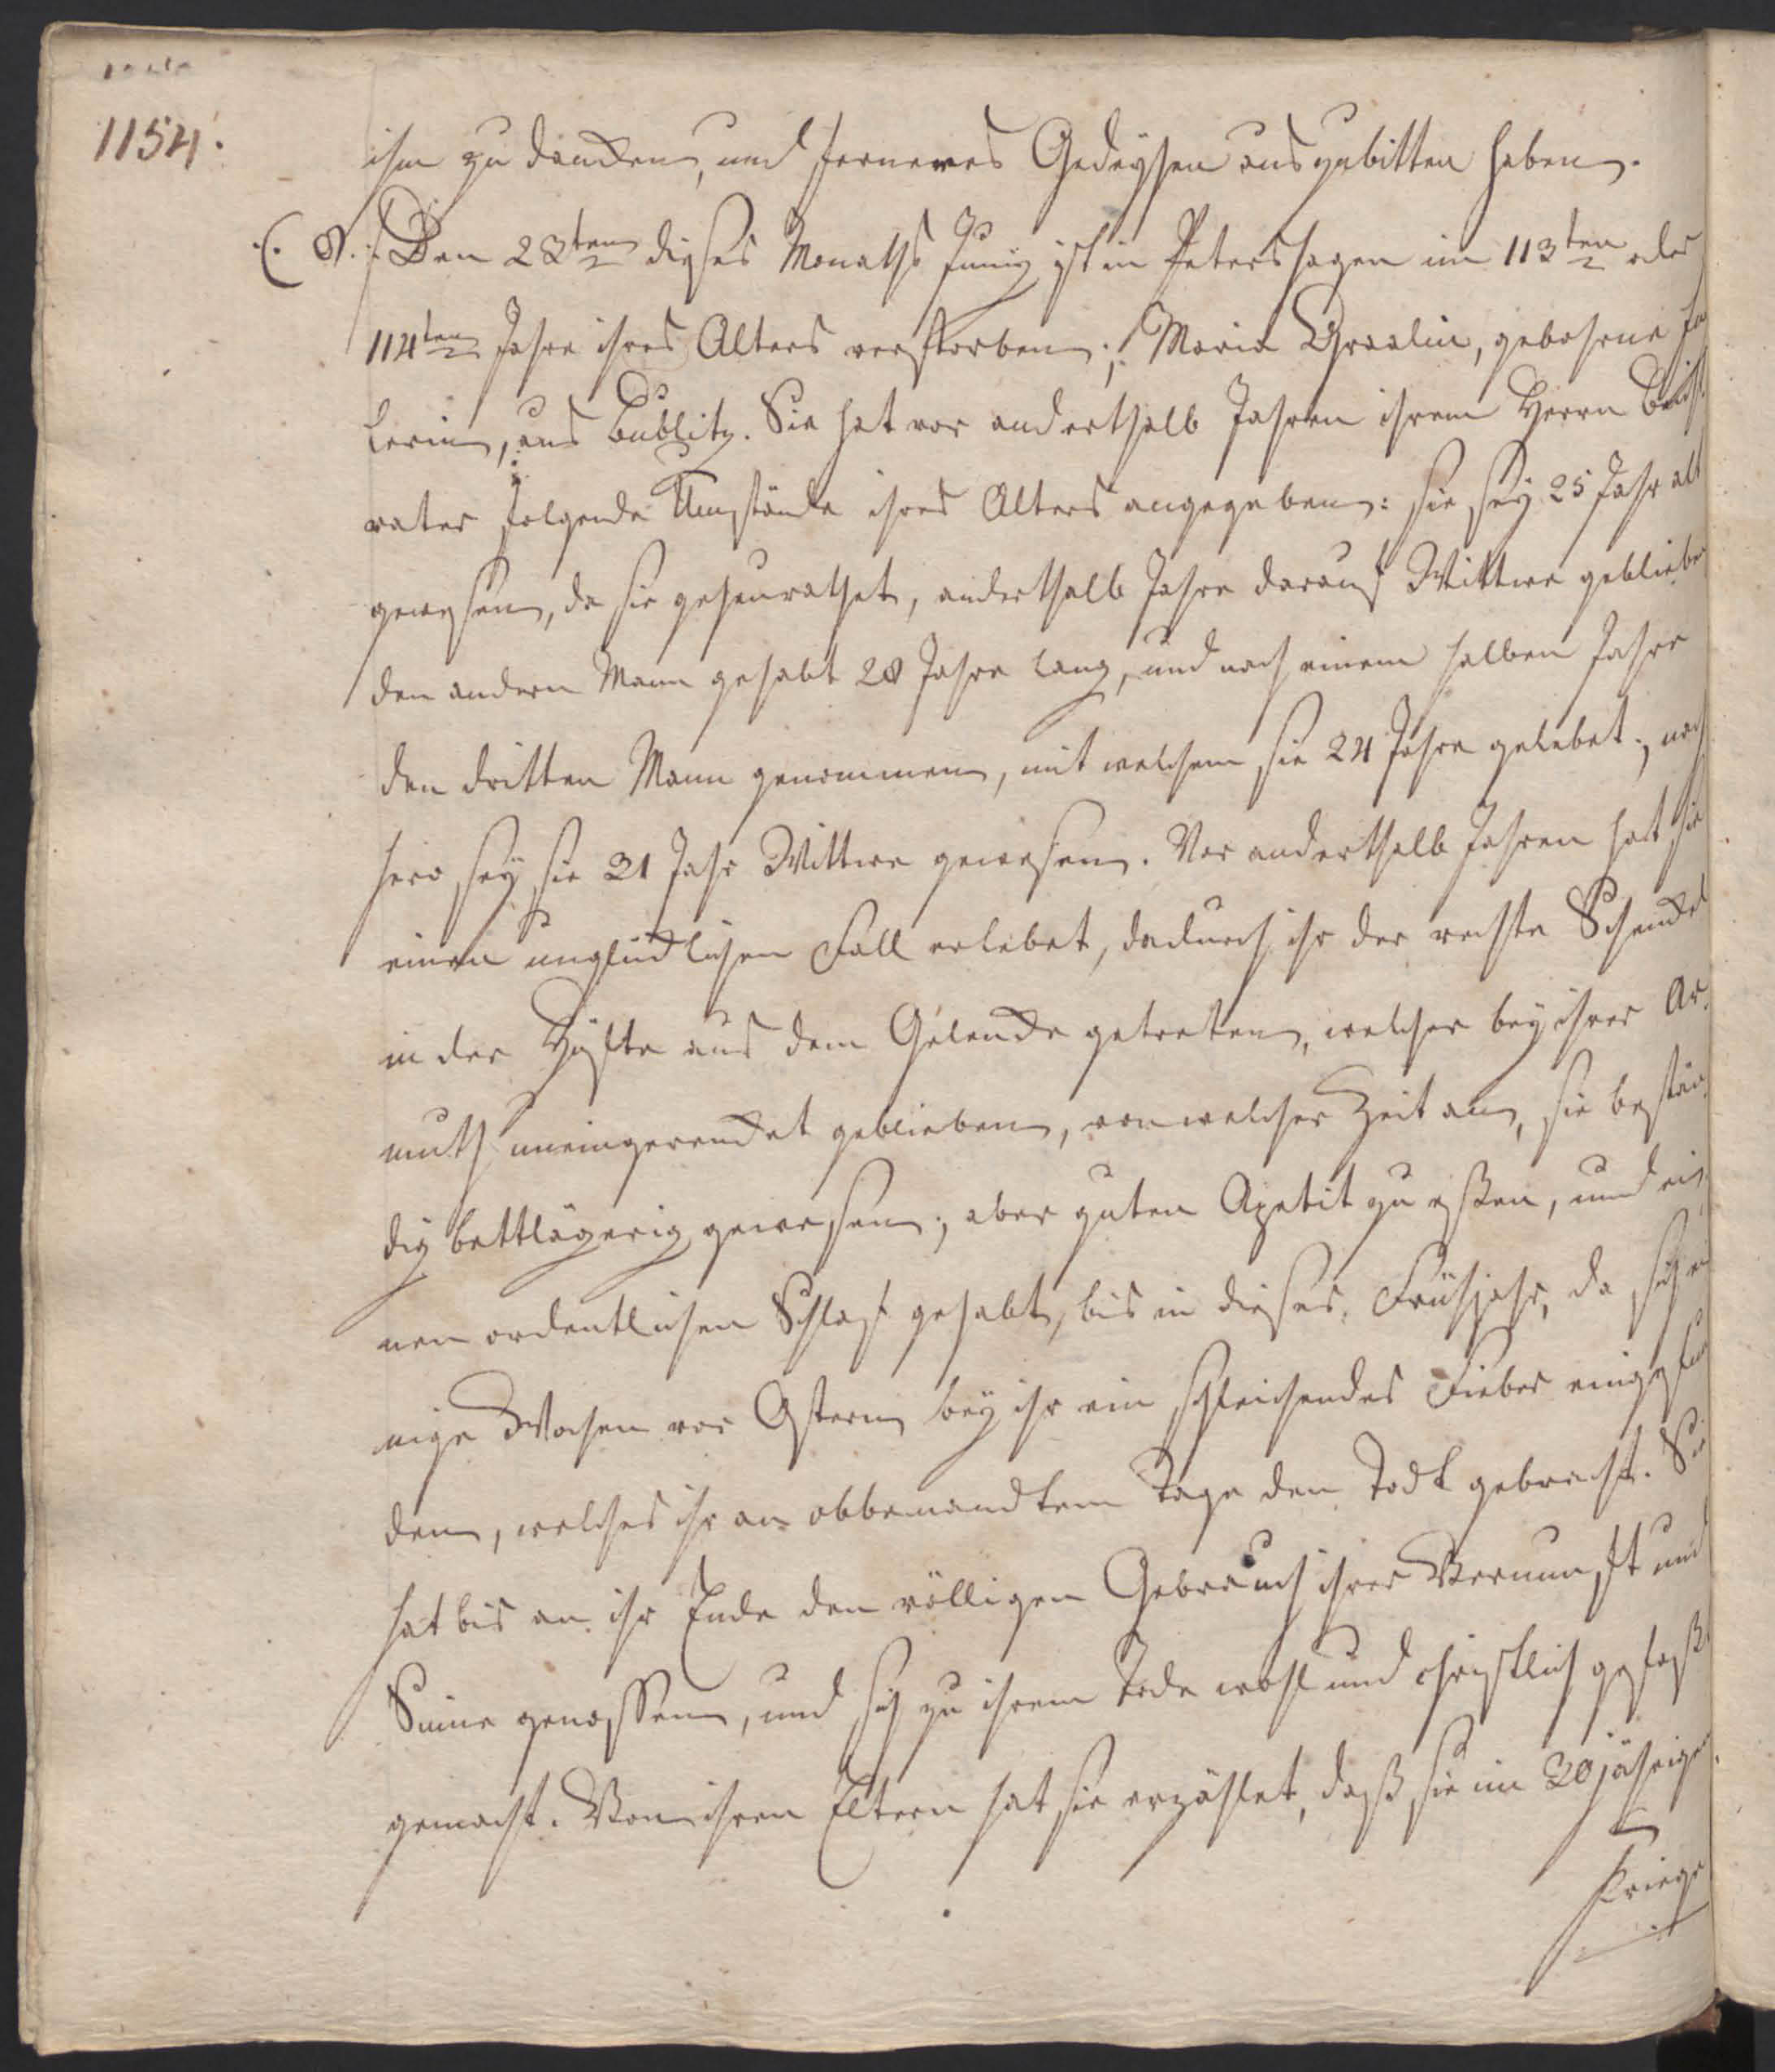 1154.
ihm zu dancken, und ferneres Gedeyhen auszubitten haben.
Den 28ten dieses Monaths Juny ist in Petershagen im 113ten oder
114ten Jahre ihres Alters verstorben; Maria Graalin, gebohrne
lerin, aus Bublitz. Sie hat vor anderthalb Jahren ihrem Herrn Beicht
vater folgende Umstände ihres Alters angegeben: sie sey 25 Jahr alt
gewesen, da sie geheurathet, anderthalb Jahre darauf Wittwe geblieben
den andern Mann gehabt 28 Jahre lang, und nach einem halben Jahre
den dritten Mann genommen, mit welchem sie 24 Jahre gelebet; nach
hero sey sie 31 Jahr Wittwe gewesen. Vor anderthalb Jahren hat sie
einen unglücklichen Fall erlebet, dadurch ihr der rechte Schenckel
in der Hüfte aus dem Gelencke getreten, welcher bey ihrer Ar
muth uneingerencket geblieben, von welcher Zeit an, sie bestän
dig bettlägerig gewesen; aber guten Apetit zu eßen, und ei
nen ordentlichen Schlaf gehabt, bis in dieses Frühjahr, da sich ei
nige Wochen vor Ostern bey ihr ein schleichendes Fieber eingefun
den, welches ihr an obbenandtem Tage den Todt gebracht. Sie
hat bis an ihr Ende den völligen Gebrauch ihrer Vernunft und
Sinne genossen, und sich zu ihrem Tode wohl und christlich gefaßt
gemacht. Von ihren Eltern hat sie erzählet, daß sie im 30jährigen
Kriege